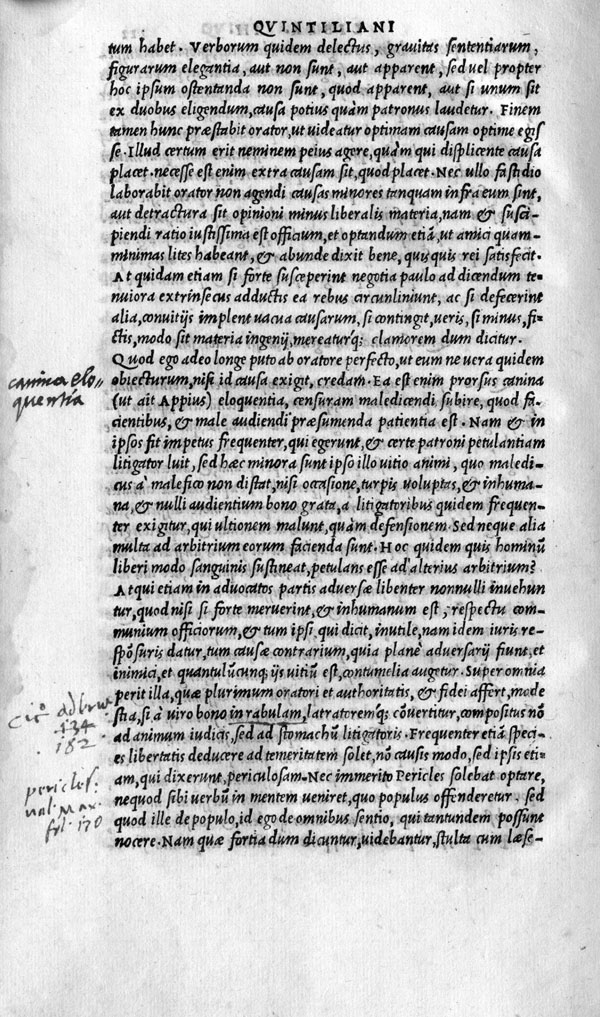 QVINTILIANI
tum habet. Verborum quidem delectus, grauitas sententiarum,
figurarum elegantia, aut non sunt, aut apparent, sed uel propter
hoc ipsum ostentanda non sunt, quod apparent, aut si unum sit
ex duobus eligendum, causa potius quàm patronus laudetur. Finem
tamen hunc præstabit orator, ut uideatur optimam causam optime egis
se. Illud certum erit neminem peius agere, quàm qui displicente causa
placet. necesse est enim extra causam sit, quod placet. Nec ullo fastidio
laborabit orator non agendi causas minores tanquam infra eum sint,
aut detractura sit opinioni minus liberalis materia, nam & susci-
piendi ratio iustissima est officium, et optandum etiã, ut amici quam-
minimas lites habeant, & abunde dixit bene, quisquis rei satisfecit.
At quidam etiam si forte susceperint negotia paulo ad dicendum te-
nuiora extrinsecus adductis ea rebus circunliniunt, ac si defecerint
alia, conuitijs implent uacua causarum, si contingit, ueris, si minus, fi-
ctis, modo sit materia ingenij, mereaturq; clamorem dum dicitur.
Quod ego adeo longe puto ab oratore perfecto, ut eum ne uera quidem
obiecturum, nisi id causa exigit, credam. Ea est enim prorsus canina
(ut ait Appius) eloquentia, censuram maledicendi subire, quod fa-
cientibus, & male audiendi præsumunda patientia est. Nam & in
ipsos fit impetus frequenter, qui egerunt, & certe patroni petulantiam
litigator luit, sed hæc minora sunt ipso illo uitio animi, quo maledi-
cus à malefico non distat, nisi occasione, turpis uoluptas, & inhuma-
na, & nulli audientium bono grata, a litigatoribus quidem frequen-
ter exigitur, qui ultionem malunt, quàm defensionem. Sed neque alia
multa ad arbitrium eorum facienda sunt. Hoc quidem quis hominũ
liberi modo sanguinis sustineat, petulans esse ad'alterius arbitrium?
Atqui etiam in aduocatos partis aduersæ libenter nonnulli inuehun
tur, quod nisi si forte meruerint, & inhumanum est, respectu com-
munium officiorum, & tum ipsi, qui dicit, inutile, nam idem iuris re-
spõsuris datur, tum causæ contrarium, quia plane aduersarij fiunt, et
inimici, et quantulũcunq; ijs uitiũ est, contumelia augetur. Super omnia
perit illa, quæ plurimum oratori et authoritatis, & fidei affert, mode
stia, si à uiro bono in rabulam, latratoremq; cõuertitur, compositus nõ
ad animum iudicis, sed ad stomachũ litigatoris. Frequenter etiã speci-
es libertatis deducere ad temeritatem solet, nõ causis modo, sed ipsis eti-
am, qui dixerunt, periculosam. Nec immerito Pericles solebat optare,
nequod sibi uerbũ in mentem ueniret, quo populus offenderetur. sed
quod ille de populo, id ego de omnibus sentio, qui tantundem possunt
nocere. Nam quæ fortia dum dicuntur, uidebantur, stulta cum læse-
canina elo-
quentia
cic ad bru
134
182
pericles.
val. Max.
fol. 170